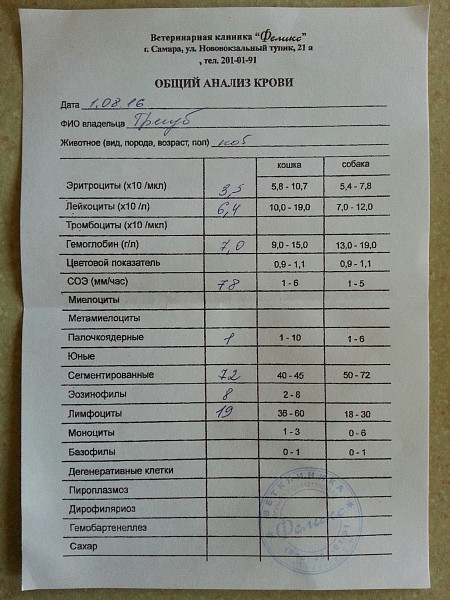 Ветеринарная клиника "Феликс"
г. Самара, ул. Нововокзальный тупик, 21 а
, тел. 201-01-91
ОБЩИЙ АНАЛИЗ КРОВИ
Дата 1.08.16
ФИО владельца
Животное (вид, порода, возраст, пол) коб
кошка собака
Эритроциты (х10 /мкл) 3,5 5,8 - 10,7 5,4 - 7,8
Лейкоциты (х10 /л) 6,4 10,0 - 19,0 7,0 - 12,0
Тромбоциты (х10 /мкл)
Гемоглобин (г/л) 7,0 9,0 - 15,0 13,0 - 19,0
Цветовой показатель 0,9 - 1,1 0,9 - 1,1
СОЭ (мм/час) 78 1 - 6 1 - 5
Миелоциты
Метамиелоциты
Палочкоядерные 1 1 - 10 1 - 6
Юные
Сегментированные 72 40 - 45 50 - 72
Эозинофилы 8 2 - 8
Лимфоциты 19 36 - 60 18 - 30
Моноциты 1 - 3 0 - 6
Базофилы 0 - 1 0 - 1
Дегенеративные клетки
Пироплазмоз
Дирофиляриоз
Гемобартенеллез
Сахар
ВЕТКЛИНИКА
Феликс